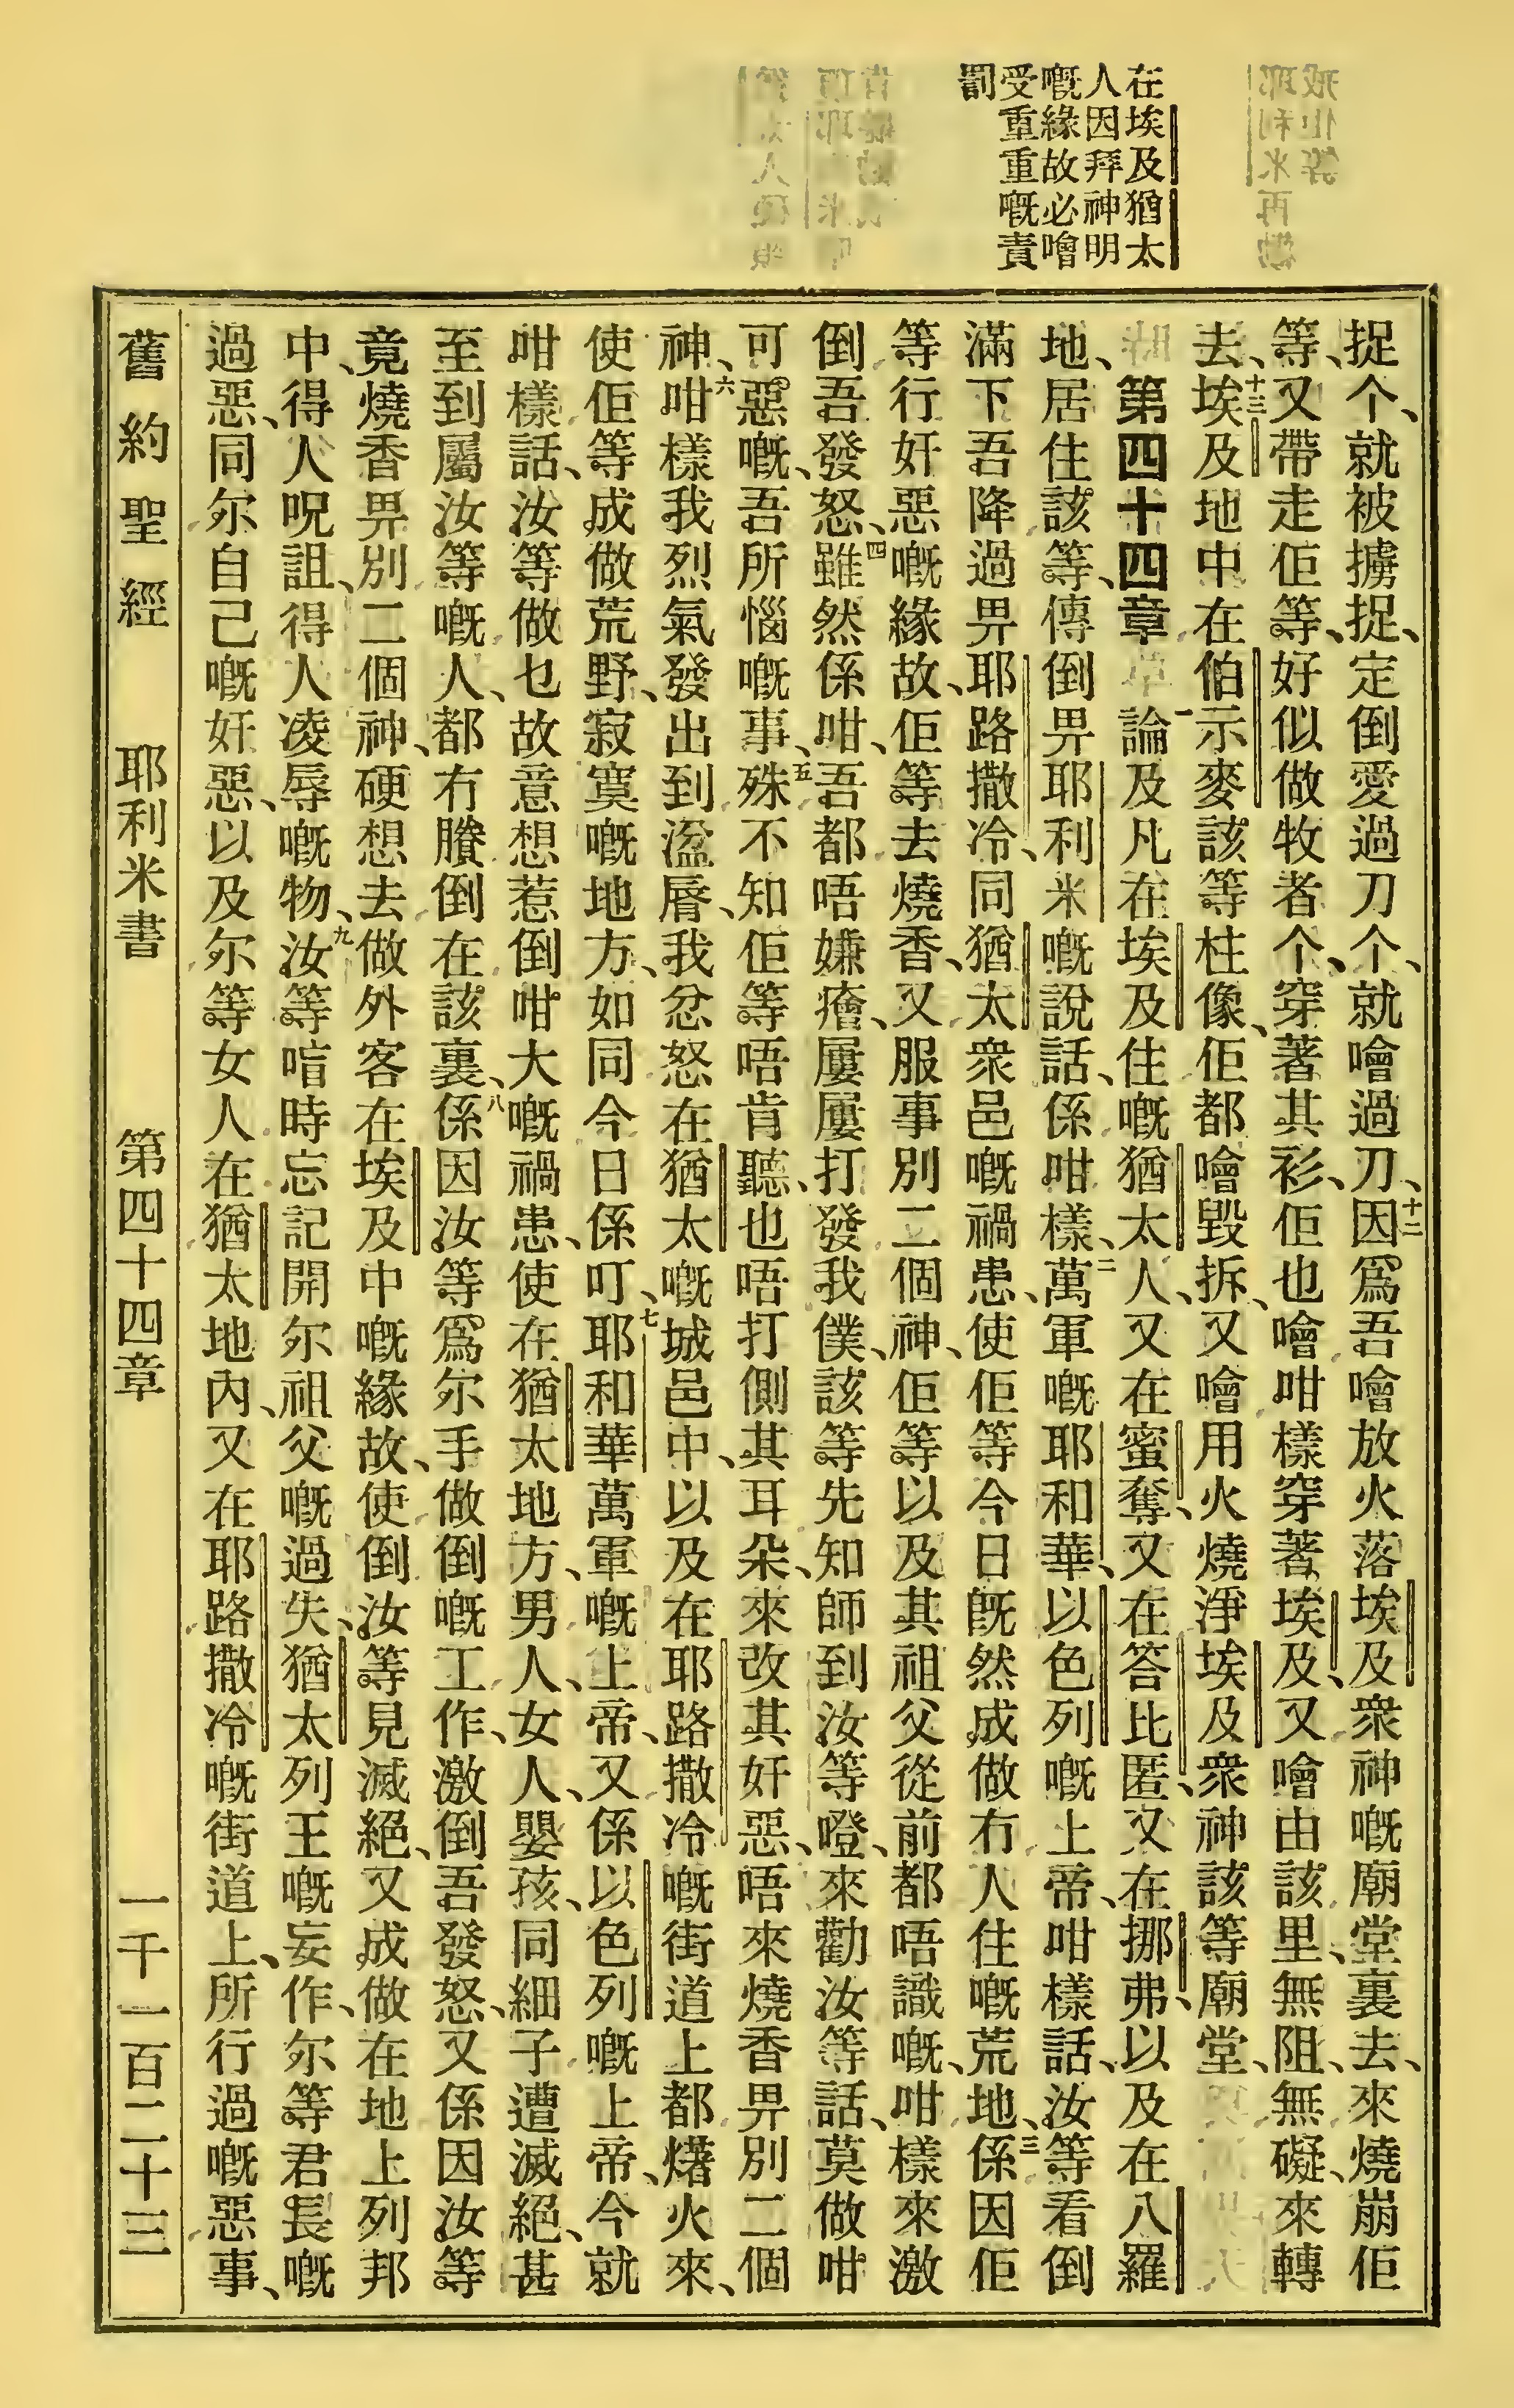 在埃及猶太
人因拜神明
嘅緣故必噲
受重重嘅責
罰
捉个、就被擄捉、定倒愛過刀个、就噲過刀、十二因爲吾噲放火落埃及衆神嘅廟堂裏去、來燒崩佢
等、又帶走佢等、好似做牧者个、穿著其衫、佢也噲咁樣穿著埃及、又噲由該里、無阻、無礙、來轉
去、十三埃及地中在伯示麥該等柱像、佢都噲毀拆、又噲用火燒淨埃及衆神該等廟堂、
第四十四章 一論及凡在埃及住嘅猶太人、又在蜜奪、又在答比匿、又在挪弗、以及在八羅
地、居住該等、傳倒畀耶利米嘅說話、係咁樣、二萬軍嘅耶和華、以色列嘅上帝、咁樣話、汝等看倒
滿下吾降過畀耶路撒冷、同猶太衆邑嘅禍患、使佢等今日旣然成做冇人住嘅荒地、三係因佢
等行奸惡嘅緣故、佢等去燒香、又服事別二個神、佢等以及其祖父從前都唔識嘅、咁樣來激
倒吾發怒、四雖然係咁、吾都唔嫌癐、屢屢打發我僕、該等先知師到汝等噔、來勸汝等話、莫做咁
可惡嘅、吾所惱嘅事、五殊不知佢等唔肯聽、也唔打側其耳朵、來改其奸惡、唔來燒香畀別二個
神、六咁樣我烈氣發出到湓脣、我忿怒在猶太嘅城邑中、以及在耶路撒冷嘅街道上都㷮火來、
使佢等成做荒野、寂寞嘅地方、如同今日係叮、七耶和華萬軍嘅上帝、又係以色列嘅上帝、今就
咁樣話、汝等做乜故意想惹倒咁大嘅禍患、使在猶太地方、男人、女人、嬰孩、同細子遭滅絕、甚
至到屬汝等嘅人、都冇賸倒在該裏、八係因汝等爲尔手做倒嘅工作、激倒吾發怒、又係因汝等
竟燒香畀別二個神、硬想去做外客在埃及中嘅緣故、使倒汝等見滅絕、又成做在地上列邦
中、得人呪詛、得人凌辱嘅物、九汝等喑時忘記開尔祖父嘅過失、猶太列王嘅妄作、尔等君長嘅
過惡、同尔自己嘅奸惡、以及尔等女人在猶太地內、又在耶路撒冷嘅街道上、所行過嘅惡事、
舊約聖經 耶利米書 第四十四章 一千一百二十三